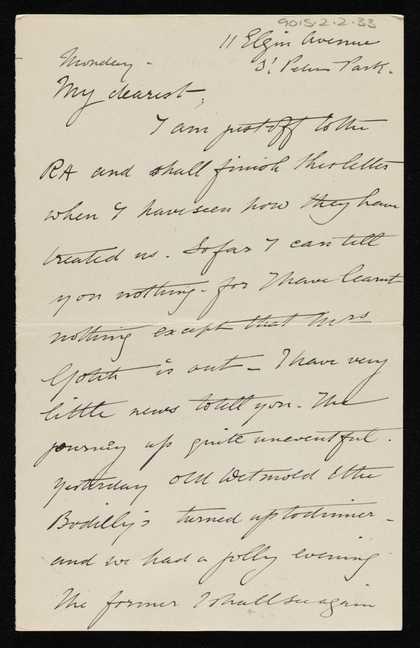 9015.2.2.33
11 Elgin Avenue
St Peters Park.
Monday -
My dearest,
I am just off to the
RA and shall finish this letter
when I have seen how they have
treated us. So far I can tell
you nothing - for I have learnt
nothing except that Mrs
is out - I have very
little news to tell you. The
journey up quite uneventful.
Yesterday old Detmold & the
Bodilly's turned up to dinner -
and we had a jolly evening
The former I shall see again